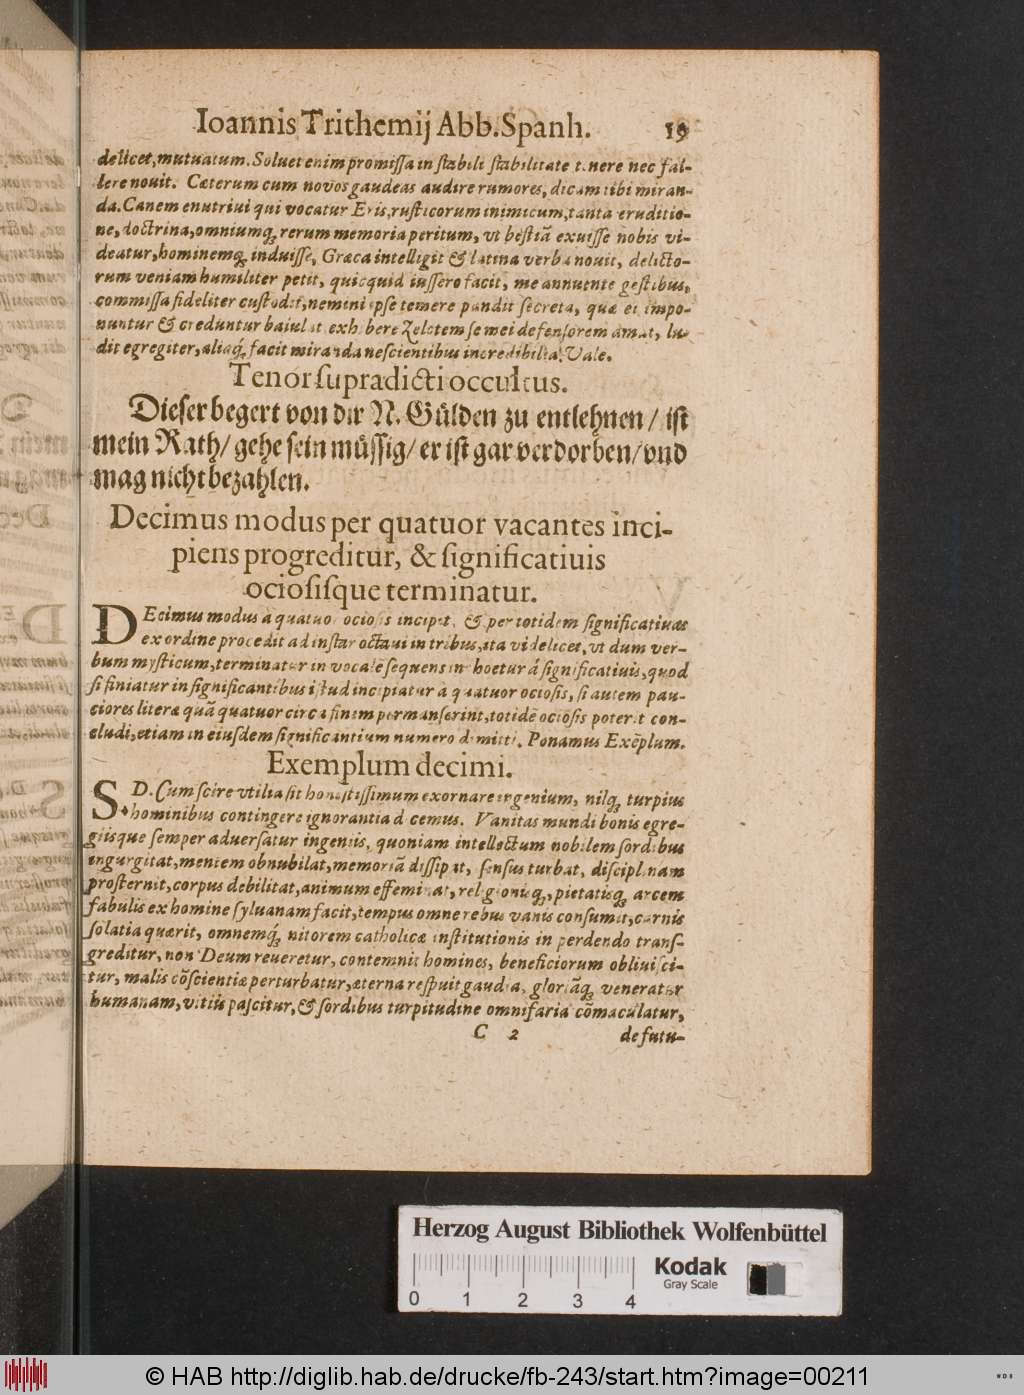 Ioannis Trithemij Abb. Spanh. 19
delicet, mutuatum. Soluet enim promissa in stabili stabilitate tenere nec fal-
lere nouit. Cæterum cum novos gaudeas audire rumores, dicam tibi miran-
da. Canem enutriui qui vocatur Eris, rusticorum inimicum, tanta eruditio-
ne, doctrina, omniumq; rerum memoria peritum, ut bestiā exuisse nobis vi-
deatur, hominemq; induisse, Græca intelligit & latina verba nouit, delicto-
rum veniam humiliter petit, quicquid iussero facit, me annuente gestibus,
commissa fideliter custodit, nemini ipse temere pandit secreta, quæ ei impo-
nuntur & creduntur baiulat exhibere Zelotem se mei defensorem amat, lu-
dit egregiter, aliaq; facit miranda nescientibus incredibilia. Vale.
Tenor supradicti occultus.
Dieser begert von dir N. Gülden zu entlehnen / ist
mein Rath / gehe sein müssig / er ist gar verdorben / vnd
mag nicht bezahlen.
Decimus modus per quatuor vacantes inci-
piens progreditur, & significatiuis
ociosisque terminatur.
DEcimus modus à quatuor ociosis incipit, & per totidem significatiuas
ex ordine procedit ad instar octaui in tribus, ita videlicet, vt dum ver-
bum mysticum, terminatur in vocale sequens in hoetur á significatiuis, quod
si finiatur in significantibus istud incipiatur à quatuor ociosis, si autem pau-
ciores literæ quā quatuor circa finem permanserint, totidē ociosis poterit con-
cludi, etiam in eiusdem significantium numero dimitti. Ponamus Exēplum.
Exemplum decimi.
S. D. Cum scire vtilia sit honestissimum exornare ingenium, nilq; turpius
hominibus contingere ignorantia dicemus. Vanitas mundi bonis egre-
giisque semper aduersatur ingeniis, quoniam intellectum nobilem sordibus
ingurgitat, mentem obnubilat, memoriā dissipat, sensus turbat, disciplinam
prosternit, corpus debilitat, animum effeminat, religionisq;, pietatisq; arcem
fabulis ex homine syluanam facit, tempus omne rebus vanis consumit, carnis
solatia quærit, omnemq́; nitorem catholicæ institutionis in perdendo trans-
greditur, non Deum reueretur, contemnit homines, beneficiorum obliuisci-
tur, malis cōscientiæ perturbatur, æterna respuit gaudia, gloriāq; veneratur
humanam, vitiis pascitur, & sordibus turpitudine omnifaria cōmaculatur,
C 2 de futu-
Herzog August Bibliothek Wolfenbüttel
Kodak
Gray Scale
0 1 2 3 4
© HAB http://diglib.hab.de/drucke/fb-243/start.htm?image=00211